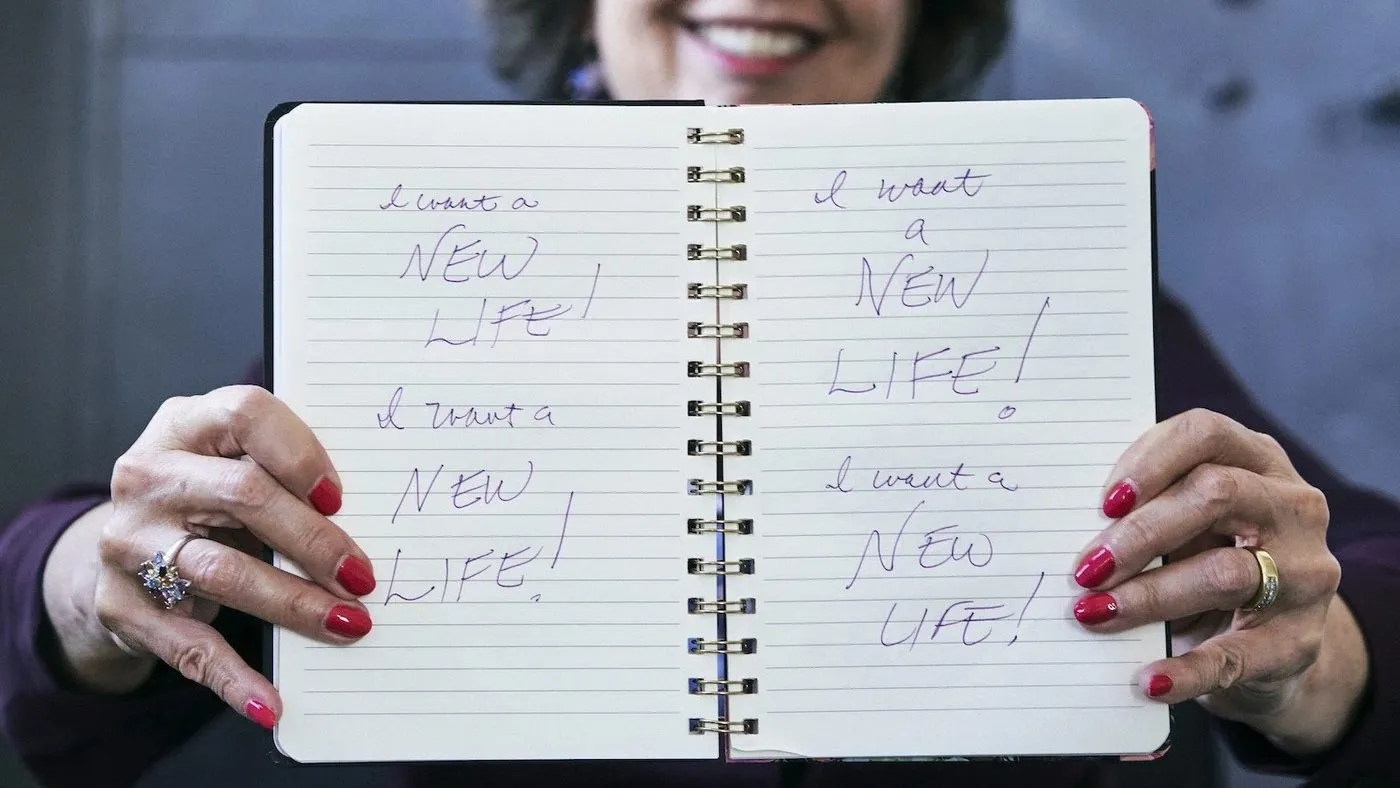 I want a
NEW
LIFE!
I want a
NEW
LIFE!
I want
a
NEW
LIFE!
I want a
NEW
LIFE!